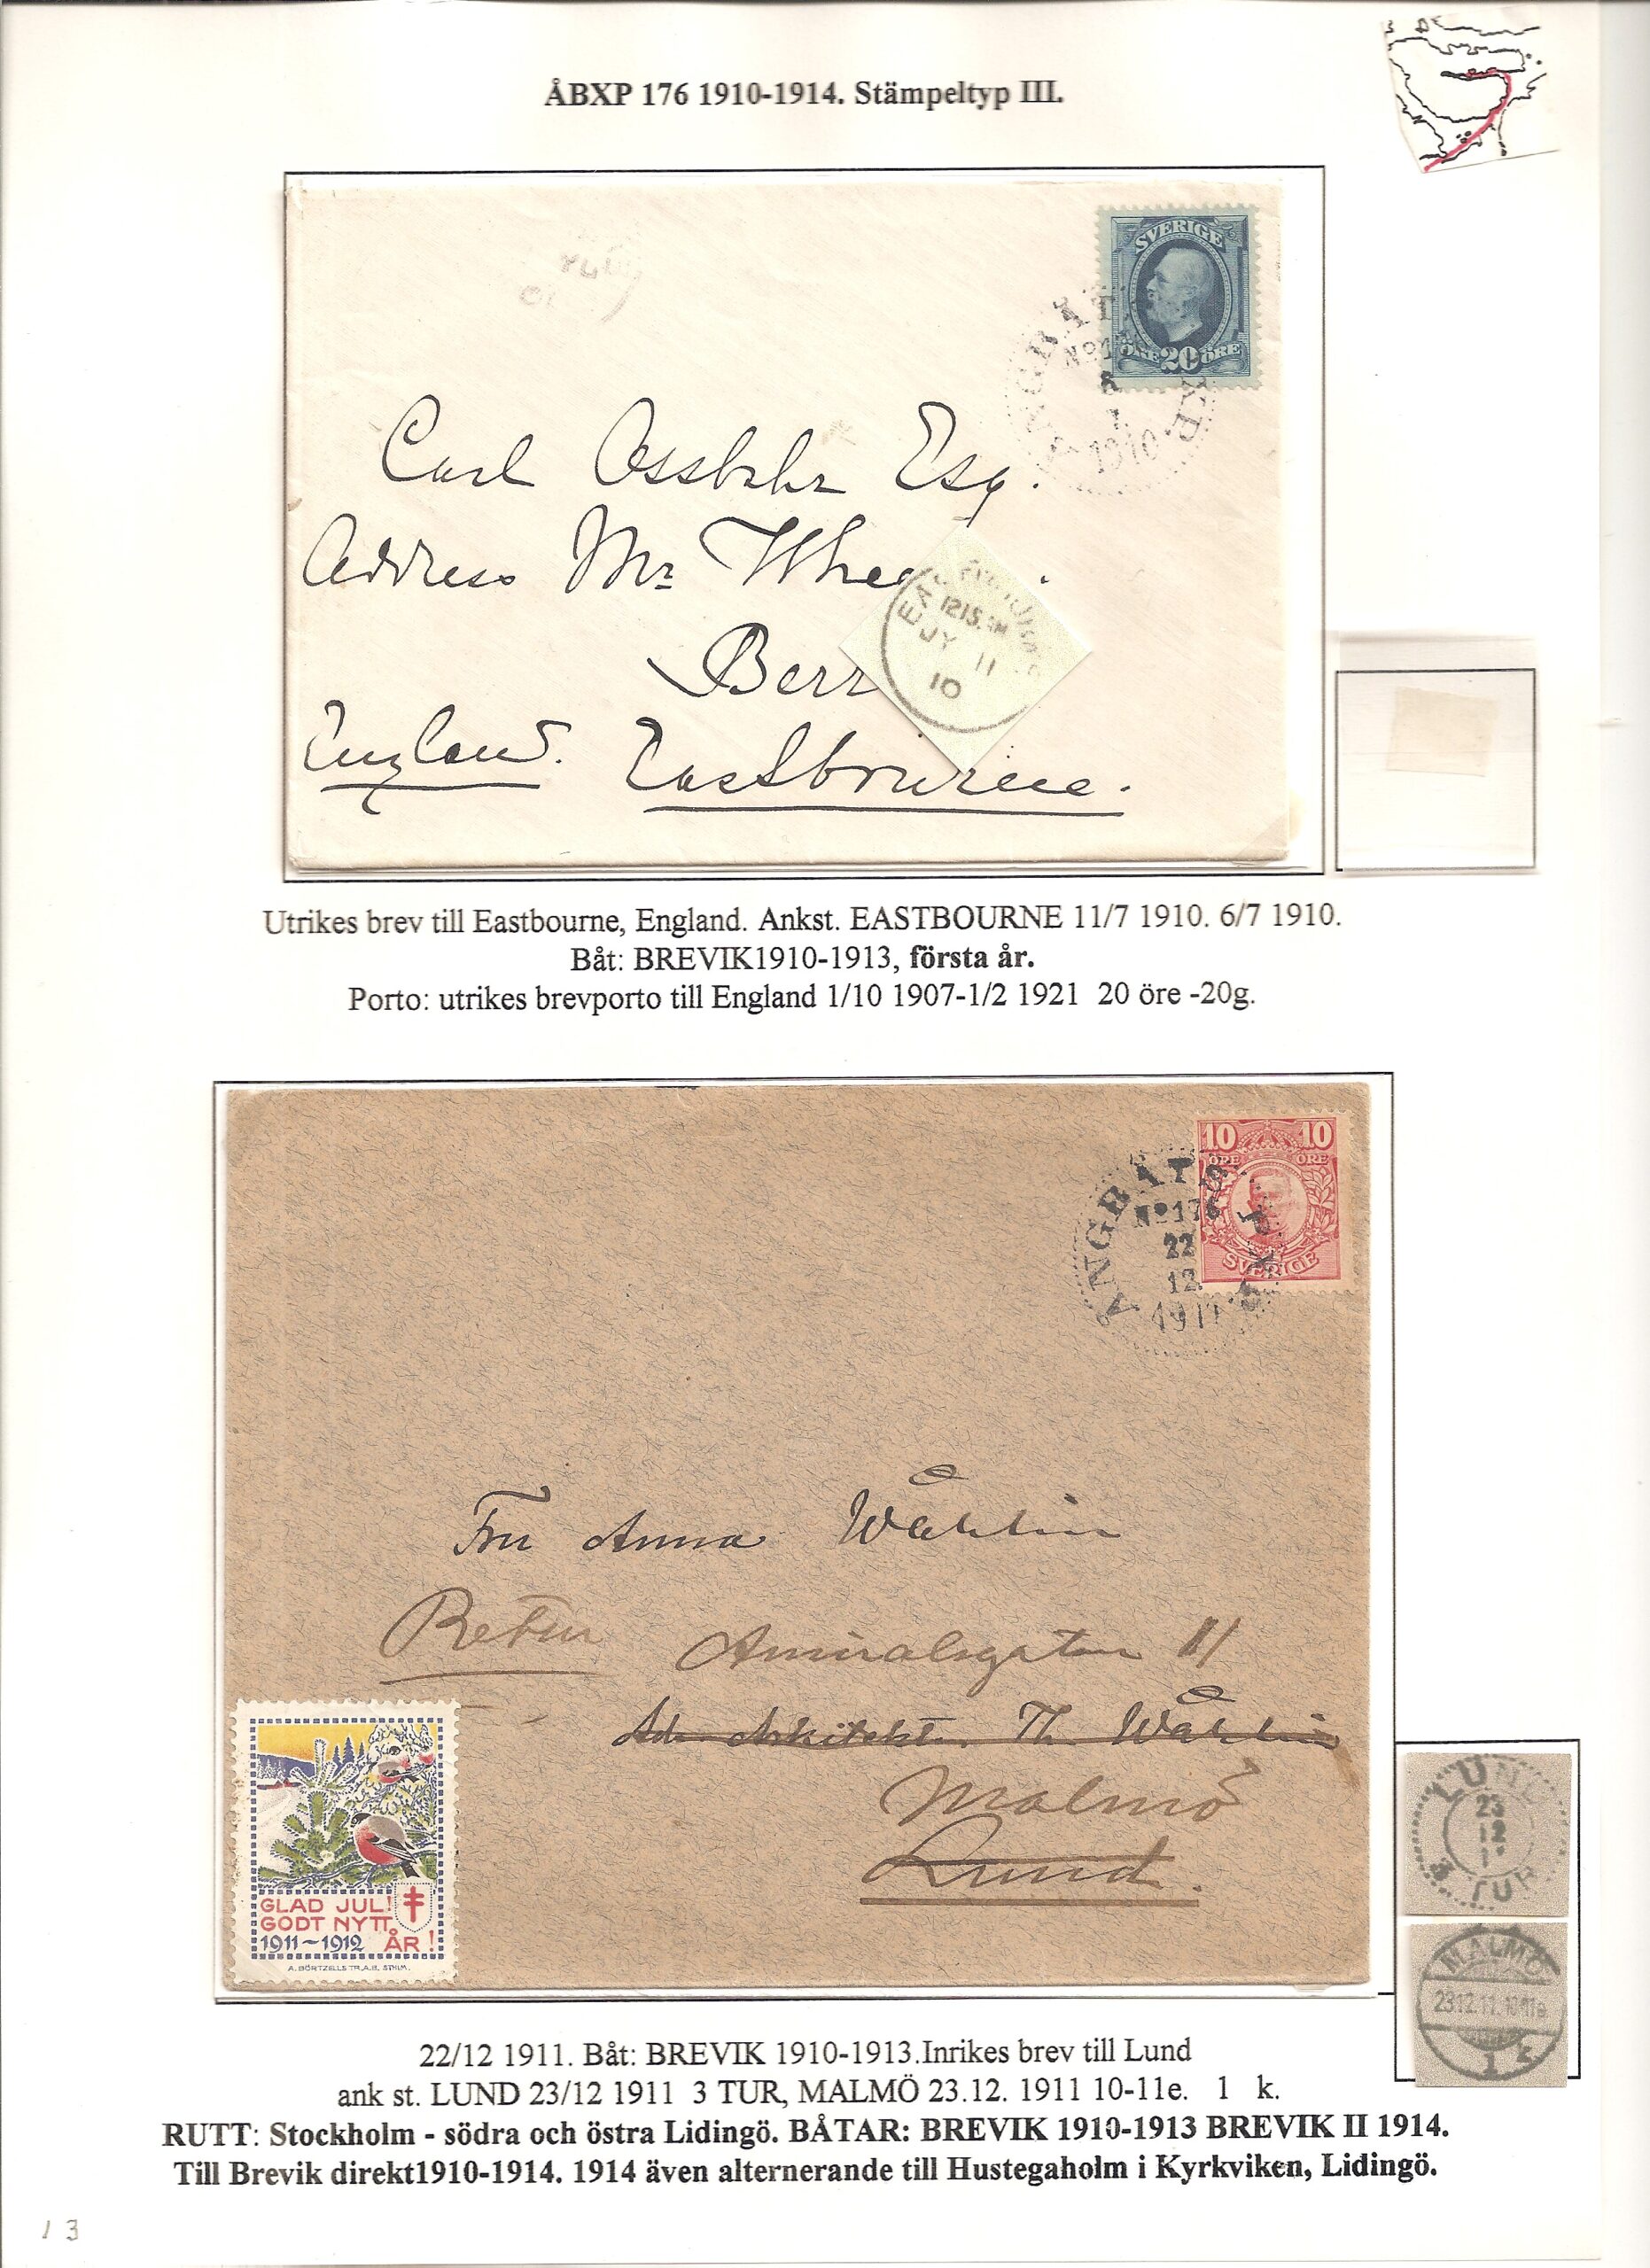 ÅBXP 176 1910-1914. Stämpeltyp III.
SVERIGE
ÖRE 20 ÖRE
ÅNGBÅT XP.
No1
6
7
1910
Carl Ossbahr Esq.
Address Mr Whee
Berr
England. Eastbourne.
EASTBOURNE
12 15 AM
JY 11
10
Utrikes brev till Eastbourne, England. Ankst. EASTBOURNE 11/7 1910. 6/7 1910.
Båt: BREVIK1910-1913, första år.
Porto: utrikes brevporto till England 1/10 1907-1/2 1921 20 öre -20g.
10 10
ÖRE ÖRE
SVERIGE
ÅNGBÅTS XP
No176
22
12
1911
Fru Anna Wåhlin
Retur Amiralsgatan 11
Adr. Arkitekt. Th. Wåhlin
Malmö
Lund.
GLAD JUL!
GODT NYTT
1911-1912 ÅR!
A. BÖRTZELLS TR.A.B. STHLM.
LUND
23
12
11
3 TUR
MALMÖ
23.12.11.10-11e.
1 K
22/12 1911. Båt: BREVIK 1910-1913.Inrikes brev till Lund
ank st. LUND 23/12 1911 3 TUR, MALMÖ 23.12. 1911 10-11e. 1 k.
RUTT: Stockholm - södra och östra Lidingö. BÅTAR: BREVIK 1910-1913 BREVIK II 1914.
Till Brevik direkt1910-1914. 1914 även alternerande till Hustegaholm i Kyrkviken, Lidingö.
13